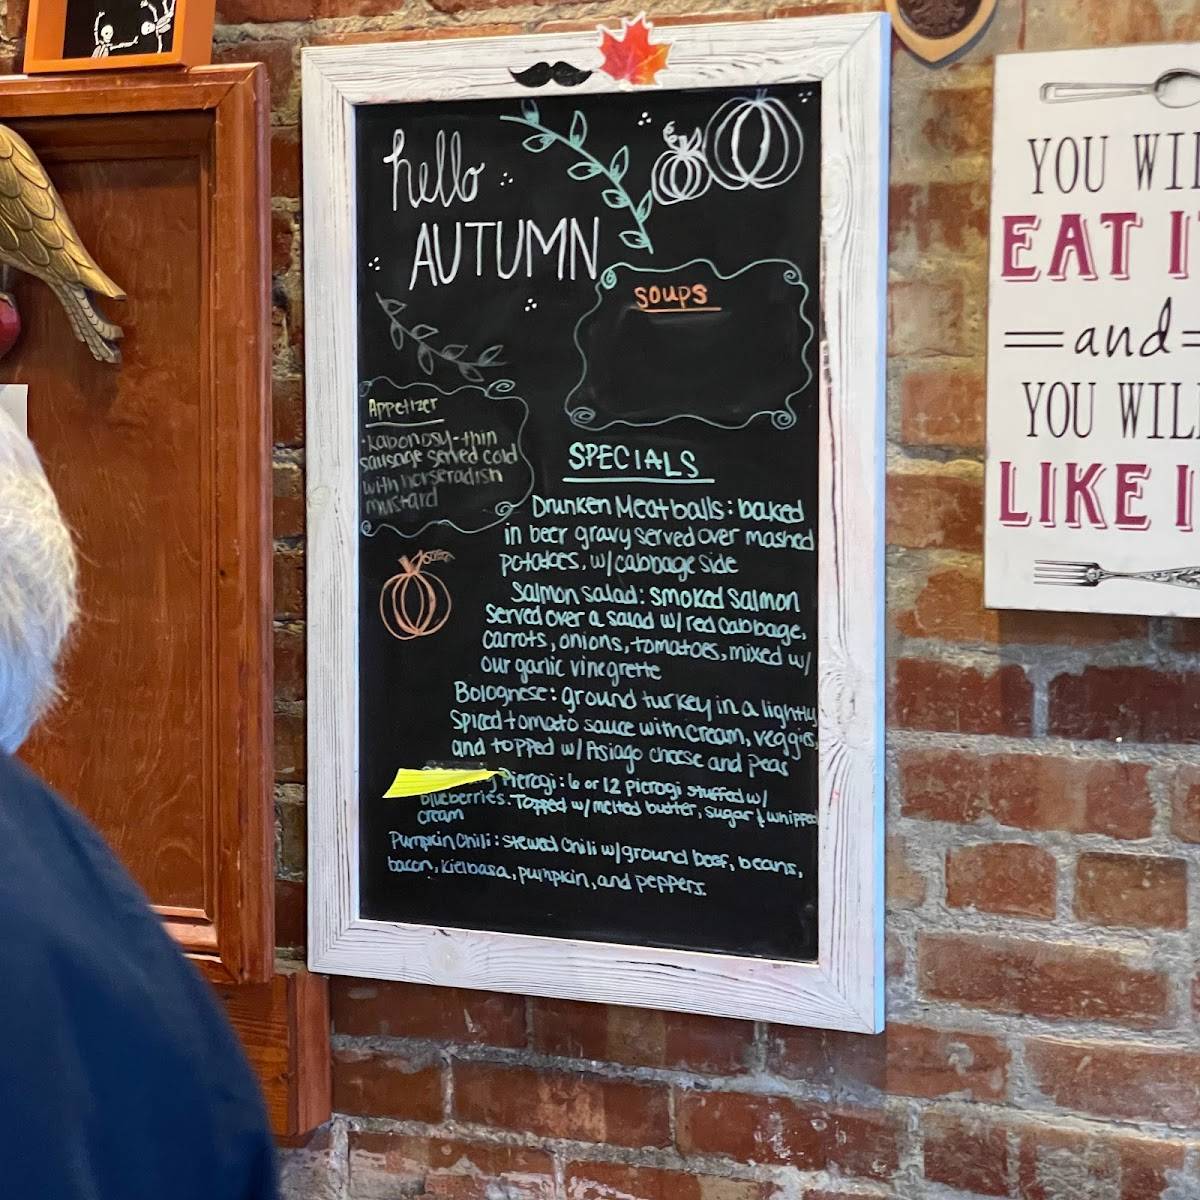 hello
AUTUMN
SOUPS
Appetizer
·Kabonosy-thin
sausage served cold
with horseradish
mustard
SPECIALS
Drunken Meatballs: baked
in beer gravy served over mashed
potatoes, w/ cabbage side
Salmon salad: smoked salmon
served over a salad w/ red cabbage,
carrots, onions, tomatoes, mixed w/
our garlic vinegrette
Bolognese: ground turkey in a lightly
spiced tomato sauce with cream, veggies,
and topped w/ Asiago cheese and peas
Pierogi: 6 or 12 pierogi stuffed w/
blueberries. Topped w/ melted butter, sugar & whipped
cream
Pumpkin Chili: stewed chili w/ ground beef, beans,
bacon, kielbasa, pumpkin, and peppers.
YOU WIL
EAT I
and
YOU WIL
LIKE I